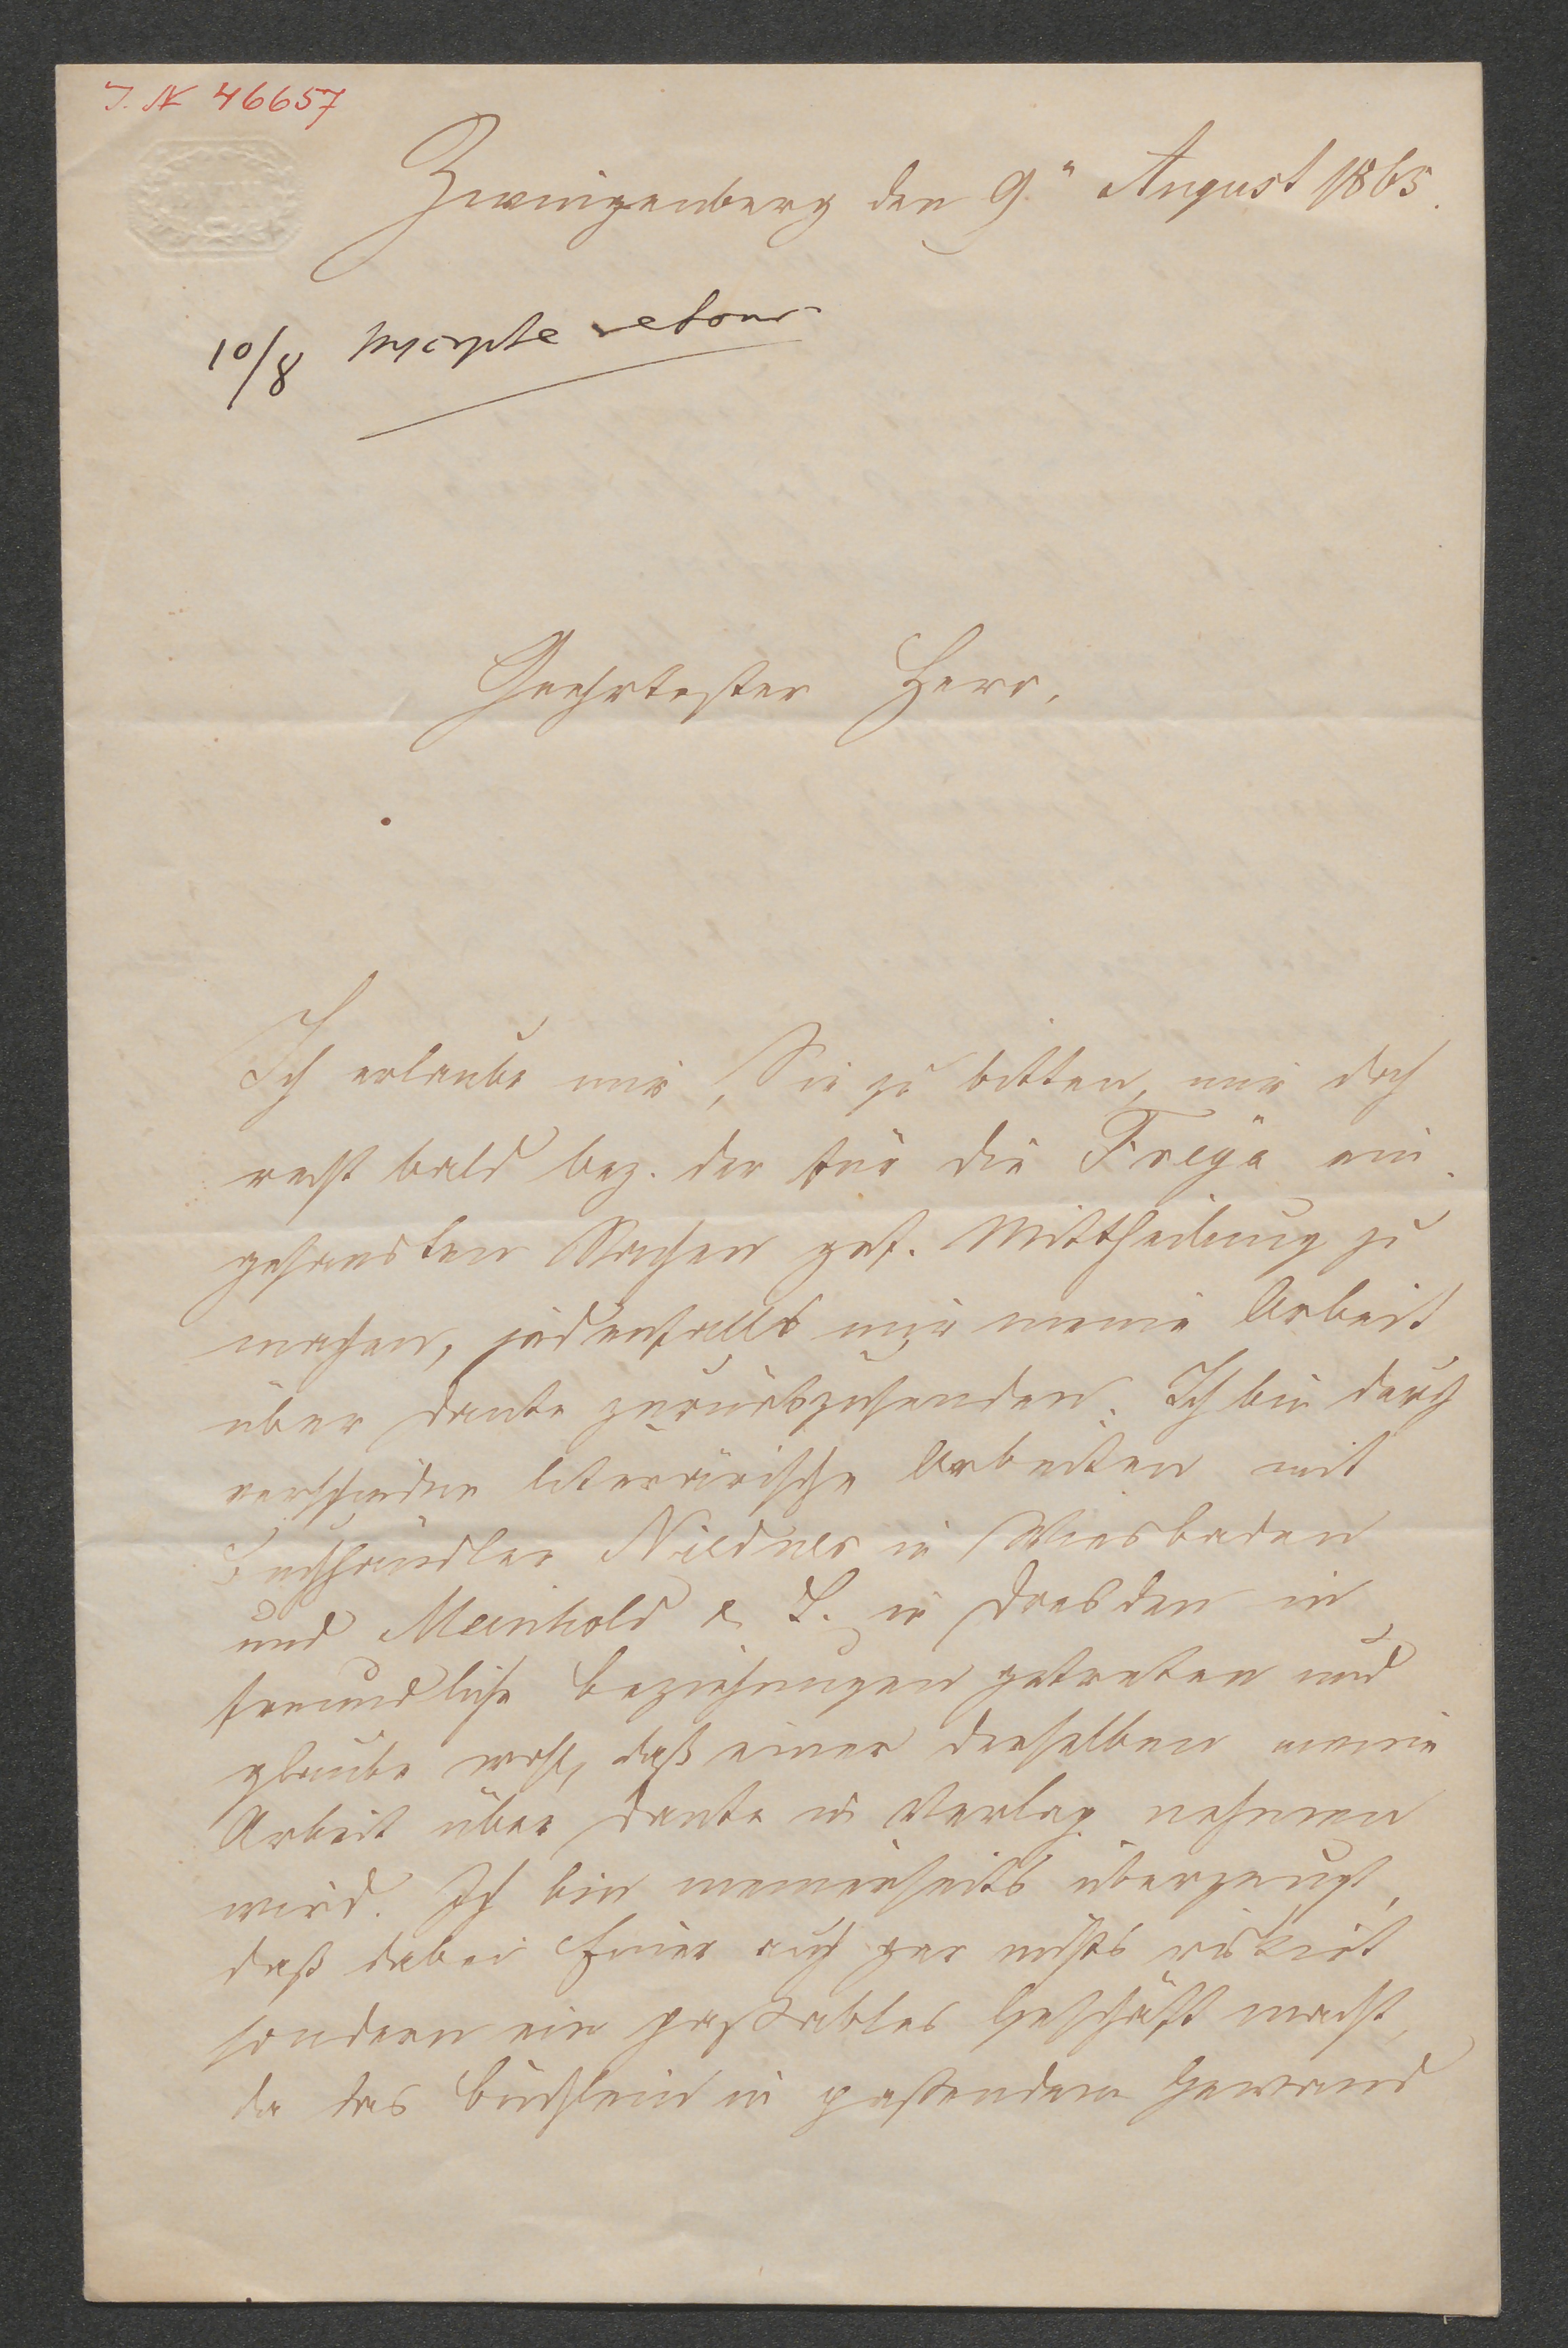 J. N. 46657
Zwingenberg den 9." August 1865.
10/8 Mscripte retour
Geehrtester Herr,
Ich erlaube mir, Sie zu bitten, mir doch
recht bald bez. der für die Freya ein-
gesandten Sachen gef. Mittheilung zu
machen, jedenfalls mir meine Arbeit
über Dante zurückzusenden. Ich bin durch
verschiedene literarische Arbeiten mit
Buchhändler Niedner in Wiesbaden
und Meinhold & S. in Dresden in
freundliche Beziehungen getreten und
glaube wohl, daß einer derselben meine
Arbeit über Dante in Verlag nehmen
wird. Ich bin meinerseits überzeugt,
daß dabei Einer auch gar nichts riskirt
sondern ein passables Geschäft macht,
da das Büchlein in passendem Gewand